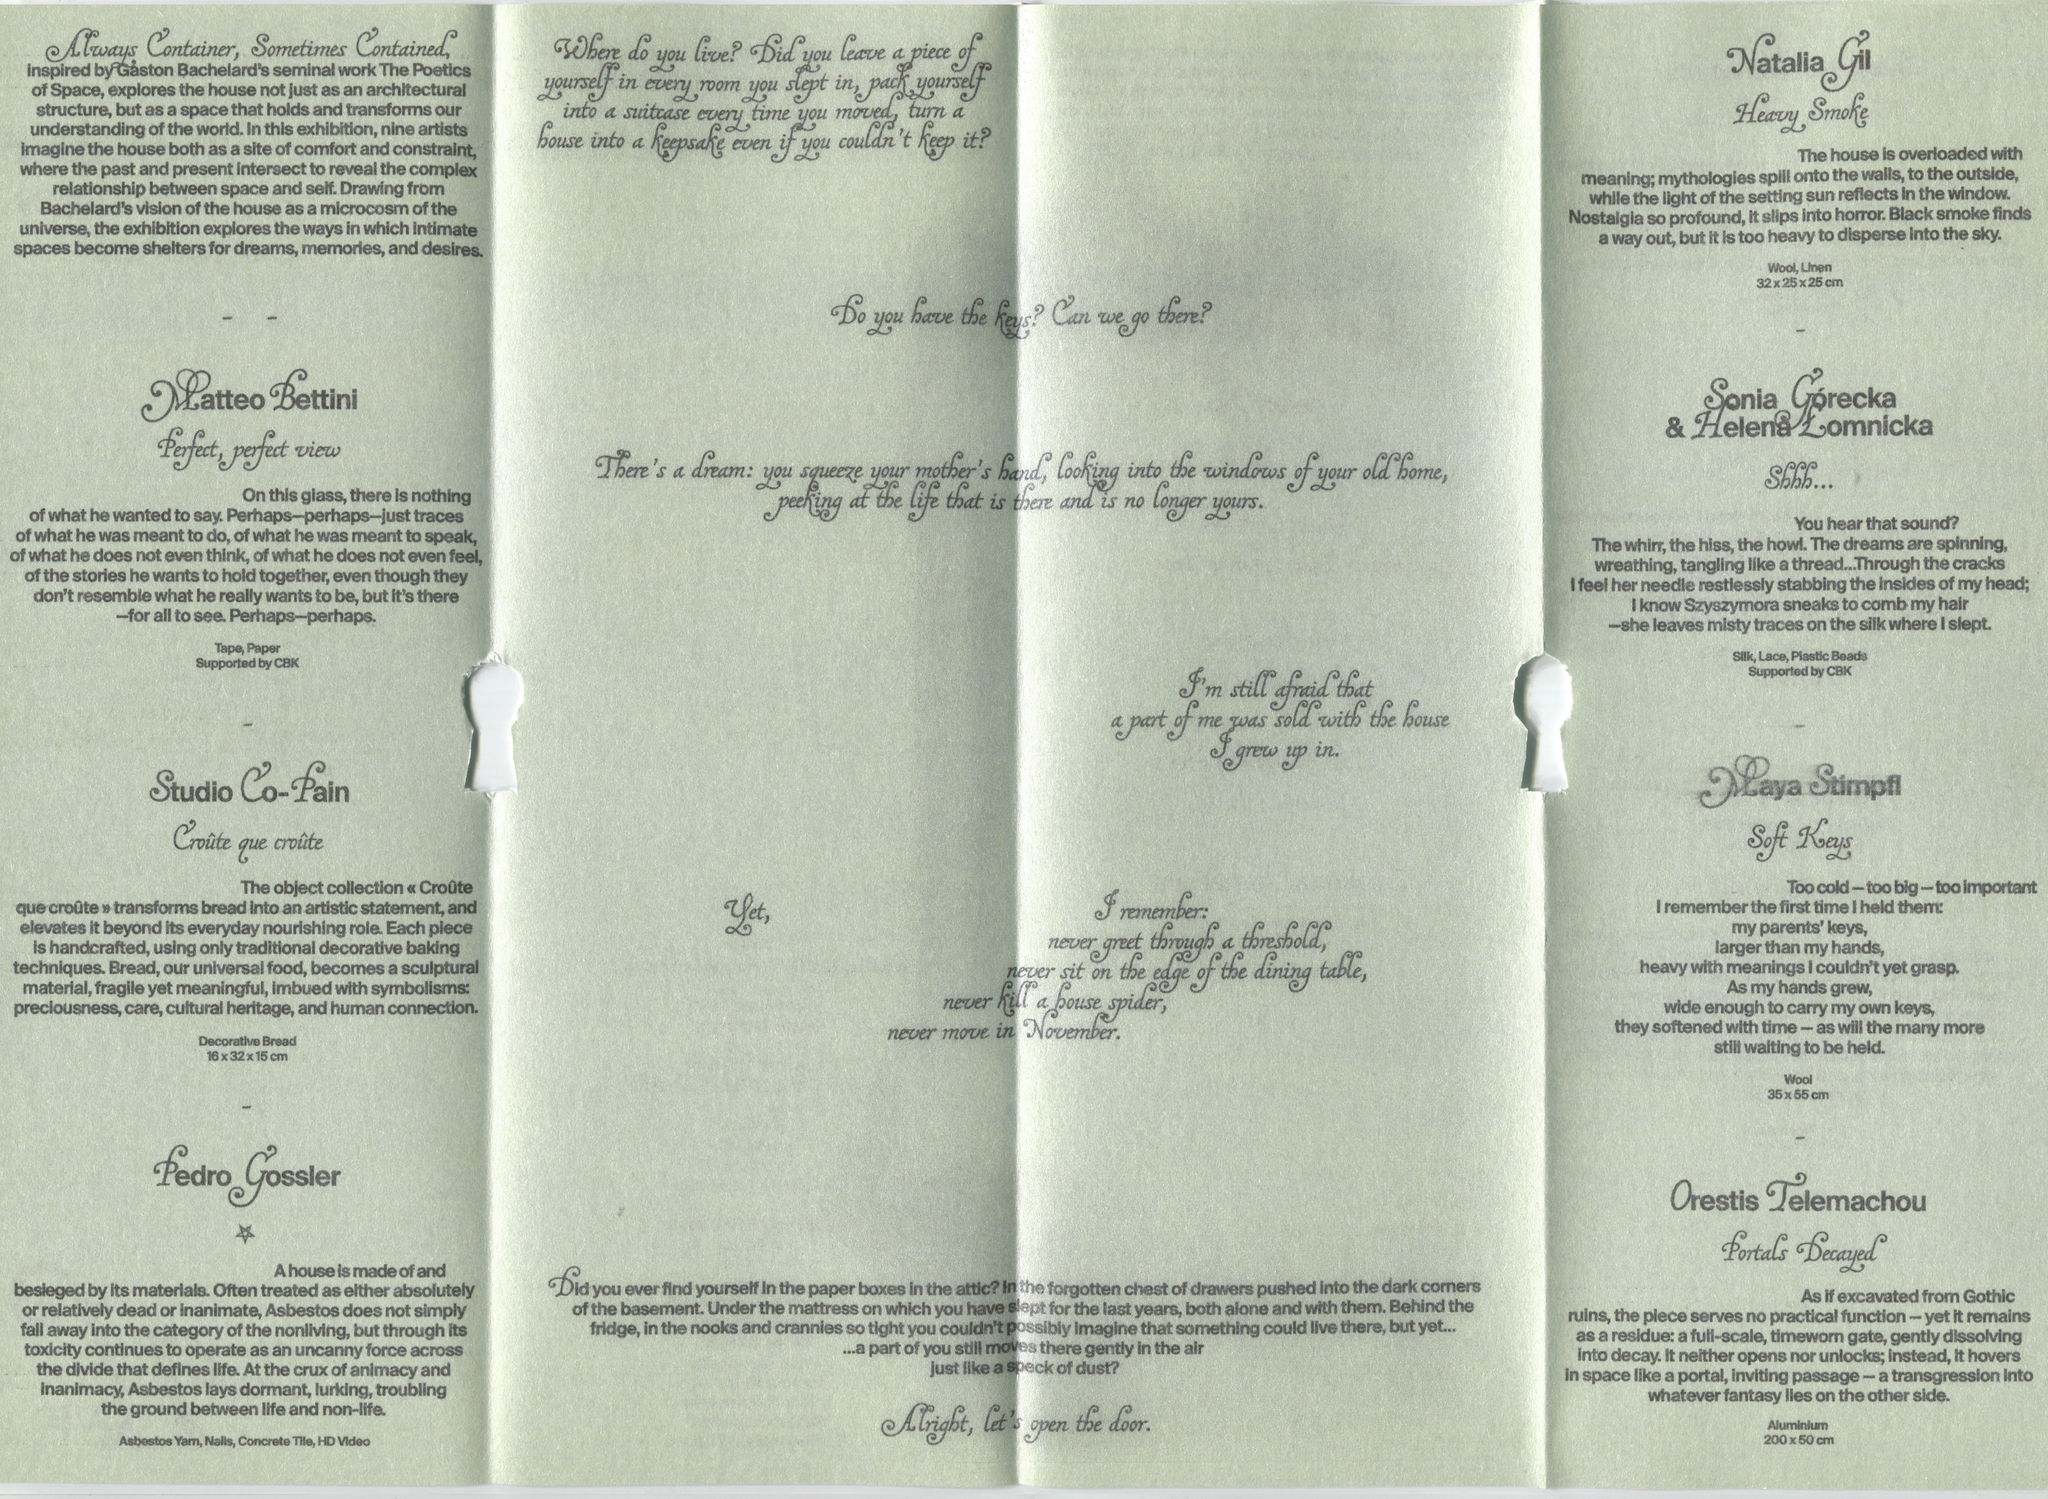 Always Container, Sometimes Contained,
inspired by Gaston Bachelard's seminal work The Poetics
of Space, explores the house not just as an architectural
structure, but as a space that holds and transforms our
understanding of the world. In this exhibition, nine artists
imagine the house both as a site of comfort and constraint,
where the past and present intersect to reveal the complex
relationship between space and self. Drawing from
Bachelard's vision of the house as a microcosm of the
universe, the exhibition explores the ways in which intimate
spaces become shelters for dreams, memories, and desires.
– –
Matteo Bettini
Perfect, perfect view
On this glass, there is nothing
of what he wanted to say. Perhaps—perhaps—just traces
of what he was meant to do, of what he was meant to speak,
of what he does not even think, of what he does not even feel,
of the stories he wants to hold together, even though they
don't resemble what he really wants to be, but it's there
—for all to see. Perhaps—perhaps.
Tape, Paper
Supported by CBK
–
Studio Co-Pain
Croûte que croûte
The object collection « Croûte
que croûte » transforms bread into an artistic statement, and
elevates it beyond its everyday nourishing role. Each piece
is handcrafted, using only traditional decorative baking
techniques. Bread, our universal food, becomes a sculptural
material, fragile yet meaningful, imbued with symbolisms:
preciousness, care, cultural heritage, and human connection.
Decorative Bread
16 x 32 x 15 cm
–
Pedro Gossler
A house is made of and
besieged by its materials. Often treated as either absolutely
or relatively dead or inanimate, Asbestos does not simply
fall away into the category of the nonliving, but through its
toxicity continues to operate as an uncanny force across
the divide that defines life. At the crux of animacy and
inanimacy, Asbestos lays dormant, lurking, troubling
the ground between life and non-life.
Asbestos Yarn, Nails, Concrete Tile, HD Video
Where do you live? Did you leave a piece of
yourself in every room you slept in, pack yourself
into a suitcase every time you moved, turn a
house into a keepsake even if you couldn't keep it?
Do you have the keys? Can we go there?
There's a dream: you squeeze your mother's hand, looking into the windows of your old home,
peeking at the life that is there and is no longer yours.
I'm still afraid that
a part of me was sold with the house
I grew up in.
Yet,
I remember:
never greet through a threshold,
never sit on the edge of the dining table,
never kill a house spider,
never move in November.
Did you ever find yourself in the paper boxes in the attic? In the forgotten chest of drawers pushed into the dark corners
of the basement. Under the mattress on which you have slept for the last years, both alone and with them. Behind the
fridge, in the nooks and crannies so tight you couldn't possibly imagine that something could live there, but yet...
...a part of you still moves there gently in the air
just like a speck of dust?
Alright, let's open the door.
Natalia Gil
Heavy Smoke
The house is overloaded with
meaning; mythologies spill onto the walls, to the outside,
while the light of the setting sun reflects in the window.
Nostalgia so profound, it slips into horror. Black smoke finds
a way out, but it is too heavy to disperse into the sky.
Wool, Linen
32 x 25 x 25 cm
–
Sonia Górecka
& Helena Łomnicka
Shhh...
You hear that sound?
The whirr, the hiss, the howl. The dreams are spinning,
wreathing, tangling like a thread...Through the cracks
I feel her needle restlessly stabbing the insides of my head;
I know Szyszymora sneaks to comb my hair
—she leaves misty traces on the silk where I slept.
Silk, Lace, Plastic Beads
Supported by CBK
–
Maya Stimpfl
Soft Keys
Too cold — too big — too important
I remember the first time I held them:
my parents' keys,
larger than my hands,
heavy with meanings I couldn't yet grasp.
As my hands grew,
wide enough to carry my own keys,
they softened with time — as will the many more
still waiting to be held.
Wool
35 x 55 cm
–
Orestis Telemachou
Portals Decayed
As if excavated from Gothic
ruins, the piece serves no practical function — yet it remains
as a residue: a full-scale, timeworn gate, gently dissolving
into decay. It neither opens nor unlocks; instead, it hovers
in space like a portal, inviting passage — a transgression into
whatever fantasy lies on the other side.
Aluminium
200 x 50 cm